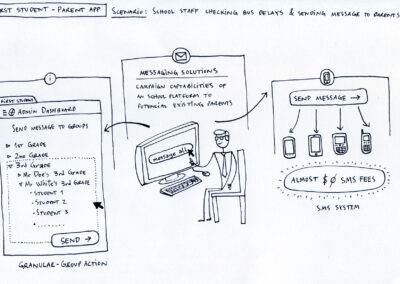 FIRST STUDENT - PARENT APP
SCENARIO: SCHOOL STAFF CHECKING BUS DELAYS & SENDING MESSAGE TO PARENTS
FIRST STUDENT
ADMIN DASHBOARD
SEND MESSAGE TO GROUPS
1ST GRADE
2ND GRADE
3RD GRADE
MR DOE'S 3RD GRADE
MR WHITE'S 3RD GRADE
• STUDENT 1
• STUDENT 2
• STUDENT 3
SEND →
GRANULAR-GROUP ACTION
MESSAGING SOLUTIONS
CAMPAIGN CAPABILITIES OF
AN SCHOOL PLATFORM TO
POTENCIAL EXISTING PARENTS
message all
SEND MESSAGE →
ALMOST $0 SMS FEES
SMS SYSTEM